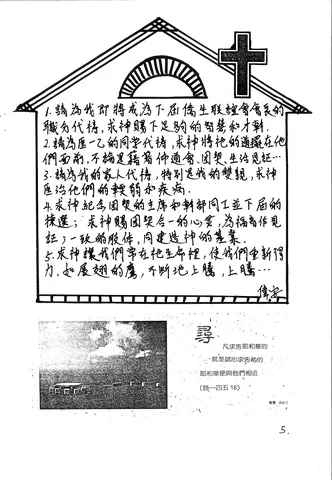 1.請為我即將成為下屆僑生聯誼會會長的
職分代禱,求神賜下足夠的智慧和才幹.
2.請為医一乙的同學代禱,求神將祂的道擺在他
們面前,不論是藉著仲通會、團契、生活見証…
3.請為我的家人代禱,特別是我的雙親,求神
医治他們的軟弱和疾病.
4.求神紀念團契的主席和幹部同工並下屆的
揀選;求神賜團契合一的心志,為福音作見
証;一致的肢体,同建造神的基業.
5.求神讓我們常在祂生命裡,使我們重新得
力.如展翅的鷹,不斷地上騰,上騰…
尋
凡求告耶和華的
就是誠心求告祂的
耶和華便與他們相近
(詩一四五18)
5.